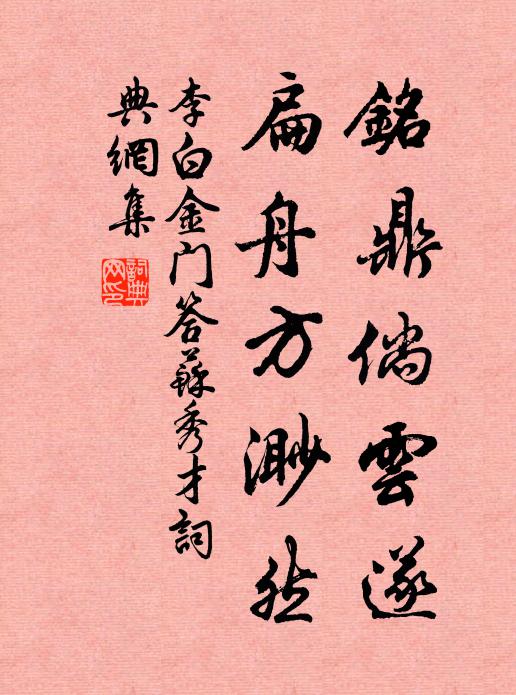 銘鼎倘雲遂
扁舟方渺然
李白金门答蘇秀才詞
典網集
詞典网印